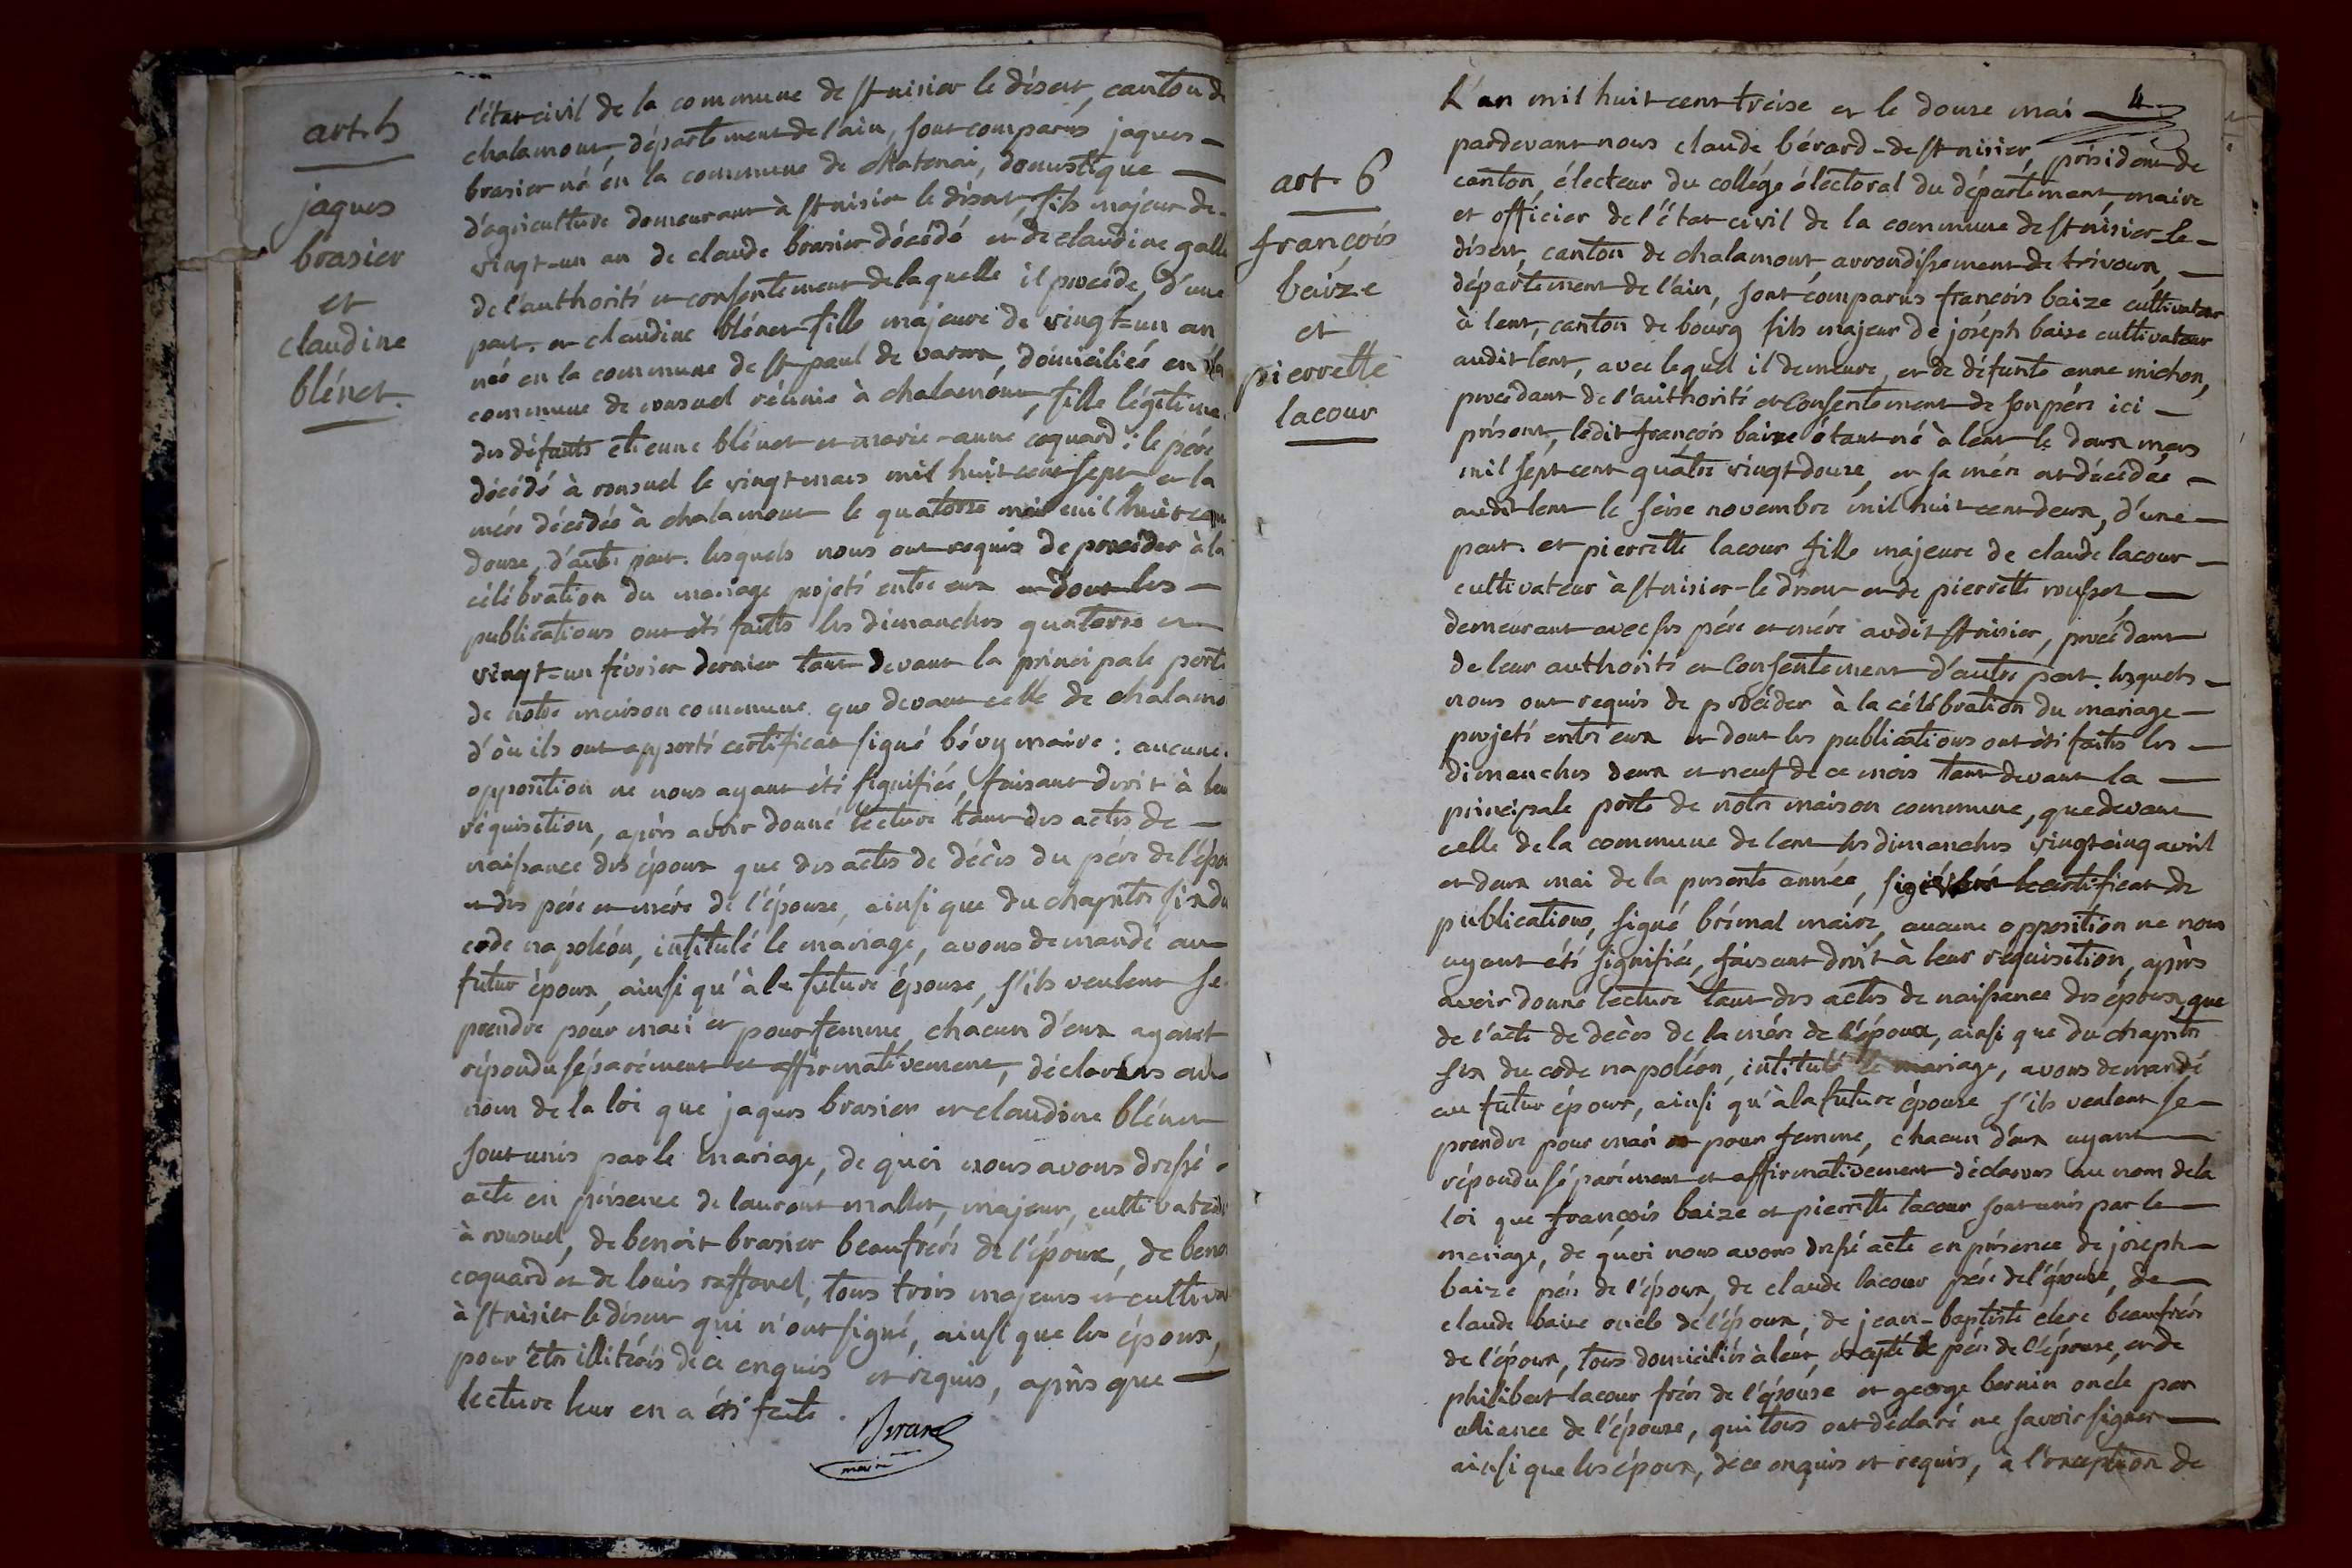 art. 5
jaques
brasier
et
claudine
blénet.
l'état civil de la commune de st nisier le désert, canton de
chalamont département de l'ain, sont comparus jaques
brasier né en la commune de chatenai, domestique
d'agriculture demeurant à st nisier le désert, fils majeur de
vingt-un an de claude brasier décédé et de claudine galle
de l'authorité et consentement de laquelle il procède, d'une
part. et claudine blénet fille majeure de vingt-un an
née en la commune de st paul de varax, domiciliée en la
commune de ronsuel réunie à chalamont, fille légitime
des défunts etienne blénet et marie-anne coquard : le père
décédé à ronsuel le vingt mars mil huit cent sept et la
mère décédée à chalamont le quatorze mai mil huit cent
douze, d'autre part. lesquels nous ont requis de procéder à la
célébration du mariage projeté entre eux et dont les
publications ont été faites les dimanches quatorze et
vingt-un février dernier tant devant la principale porte
de notre maison commune que devant celle de chalamo
d'où ils ont apporté certificat signé bévy maire : aucune
opposition ne nous ayant été signifiée, faisant droit à leu
réquisition, après avoir donné lecture tant des actes de
naissance des époux que des actes de décès du père de l'épou
et des père et mère de l'épouse, ainsi que du chapitre six du
code napoléon, intitulé le mariage, avons demandé au
futur époux, ainsi qu'à la future épouse, s'ils veulent se
prendre pour mari et pour femme, chacun d'eux ayant
répondu séparément et affirmativement, déclarons au
nom de la loi que jaques brasier et claudine blénet
sont unis par le mariage, de quoi nous avons dressé
acte en présence de laurent mallet, majeur, cultivateur
à ronsuel, de benoit brasier beaufrère de l'époux, de beno
coquard et de louis raffanel, tous trois majeurs et cultiva
à st nisier le désert qui n'ont signé, ainsi que les époux,
pour être illitérés de ce enquis et requis, après que
lecture leur en a été faite.
Berard
maire
4
art. 6
françois
baize
et
pierrette
lacour
L'an mil huit cent treize et le douze mai
pardevant nous claude bérard de st nisier, président de
canton, électeur du collége électoral du département, maire
et officier de l'état civil de la commune de st nisier-le-
désert, canton de chalamont, arrondissement de trévoux,
département de l'ain, sont comparus françois baize cultivateur
à lent, canton de bourg fils majeur de joséph baize cultivateur
audit lent, avec lequel il demeure, et de défunte anne michon,
procédant de l'authorité et consentement de son père ici
présent, ledit françois baize étant né à lent le deux mars
mil sept cent quatre vingt douze, et sa mère est décédée
audit lent le seise novembre mil huit cent deux, d'une
part. et pierrette lacour fille majeure de claude lacour
cultivateur à st nisier-le désert et de pierrette rousset
demeurant avec ses père et mère audit st nisier, procédant
de leur authorité et consentement d'autre part. lesquels
nous ont requis de procéder à la célébration du mariage
projeté entre eux et dont les publications ont été faites les
dimanches deux et neuf de ce mois tant devant la
principale porte de notre maison commune, que devant
celle de la commune de lent les dimanches vingt cinq avril
et deux mai de la présente année, le certificat de
publications, signé brémal maire, aucune opposition ne nous
ayant été signifiée, faisant droit à leur réquisition, après
avoir donné lecture tant des actes de naissance des époux, que
de l'acte de décès de la mère de l'époux, ainsi que du chapitre
six du code napoléon, intitulé le mariage, avons demandé
au futur époux, ainsi qu'à la future épouse s'ils veulent se
prendre pour mari et pour femme, chacun d'eux ayant
répondu séparément et affirmativement déclarons au nom de la
loi que françois baize et pierrette lacour sont unis par le
mariage, de quoi nous avons dressé acte en présence de joseph
baize père de l'époux, de claude lacour père de l'épouse, de
claude baize oncle de l'époux, de jean-baptiste clerc beaufrère
de l'époux, tous domiciliés à lent, excepté le père de l'épouse, et de
philibert lacour frère de l'épouse et george bernin oncle par
alliance de l'épouse, qui tous ont déclaré ne savoir signer
ainsi que les époux, de ce enquis et requis, à l'exception de